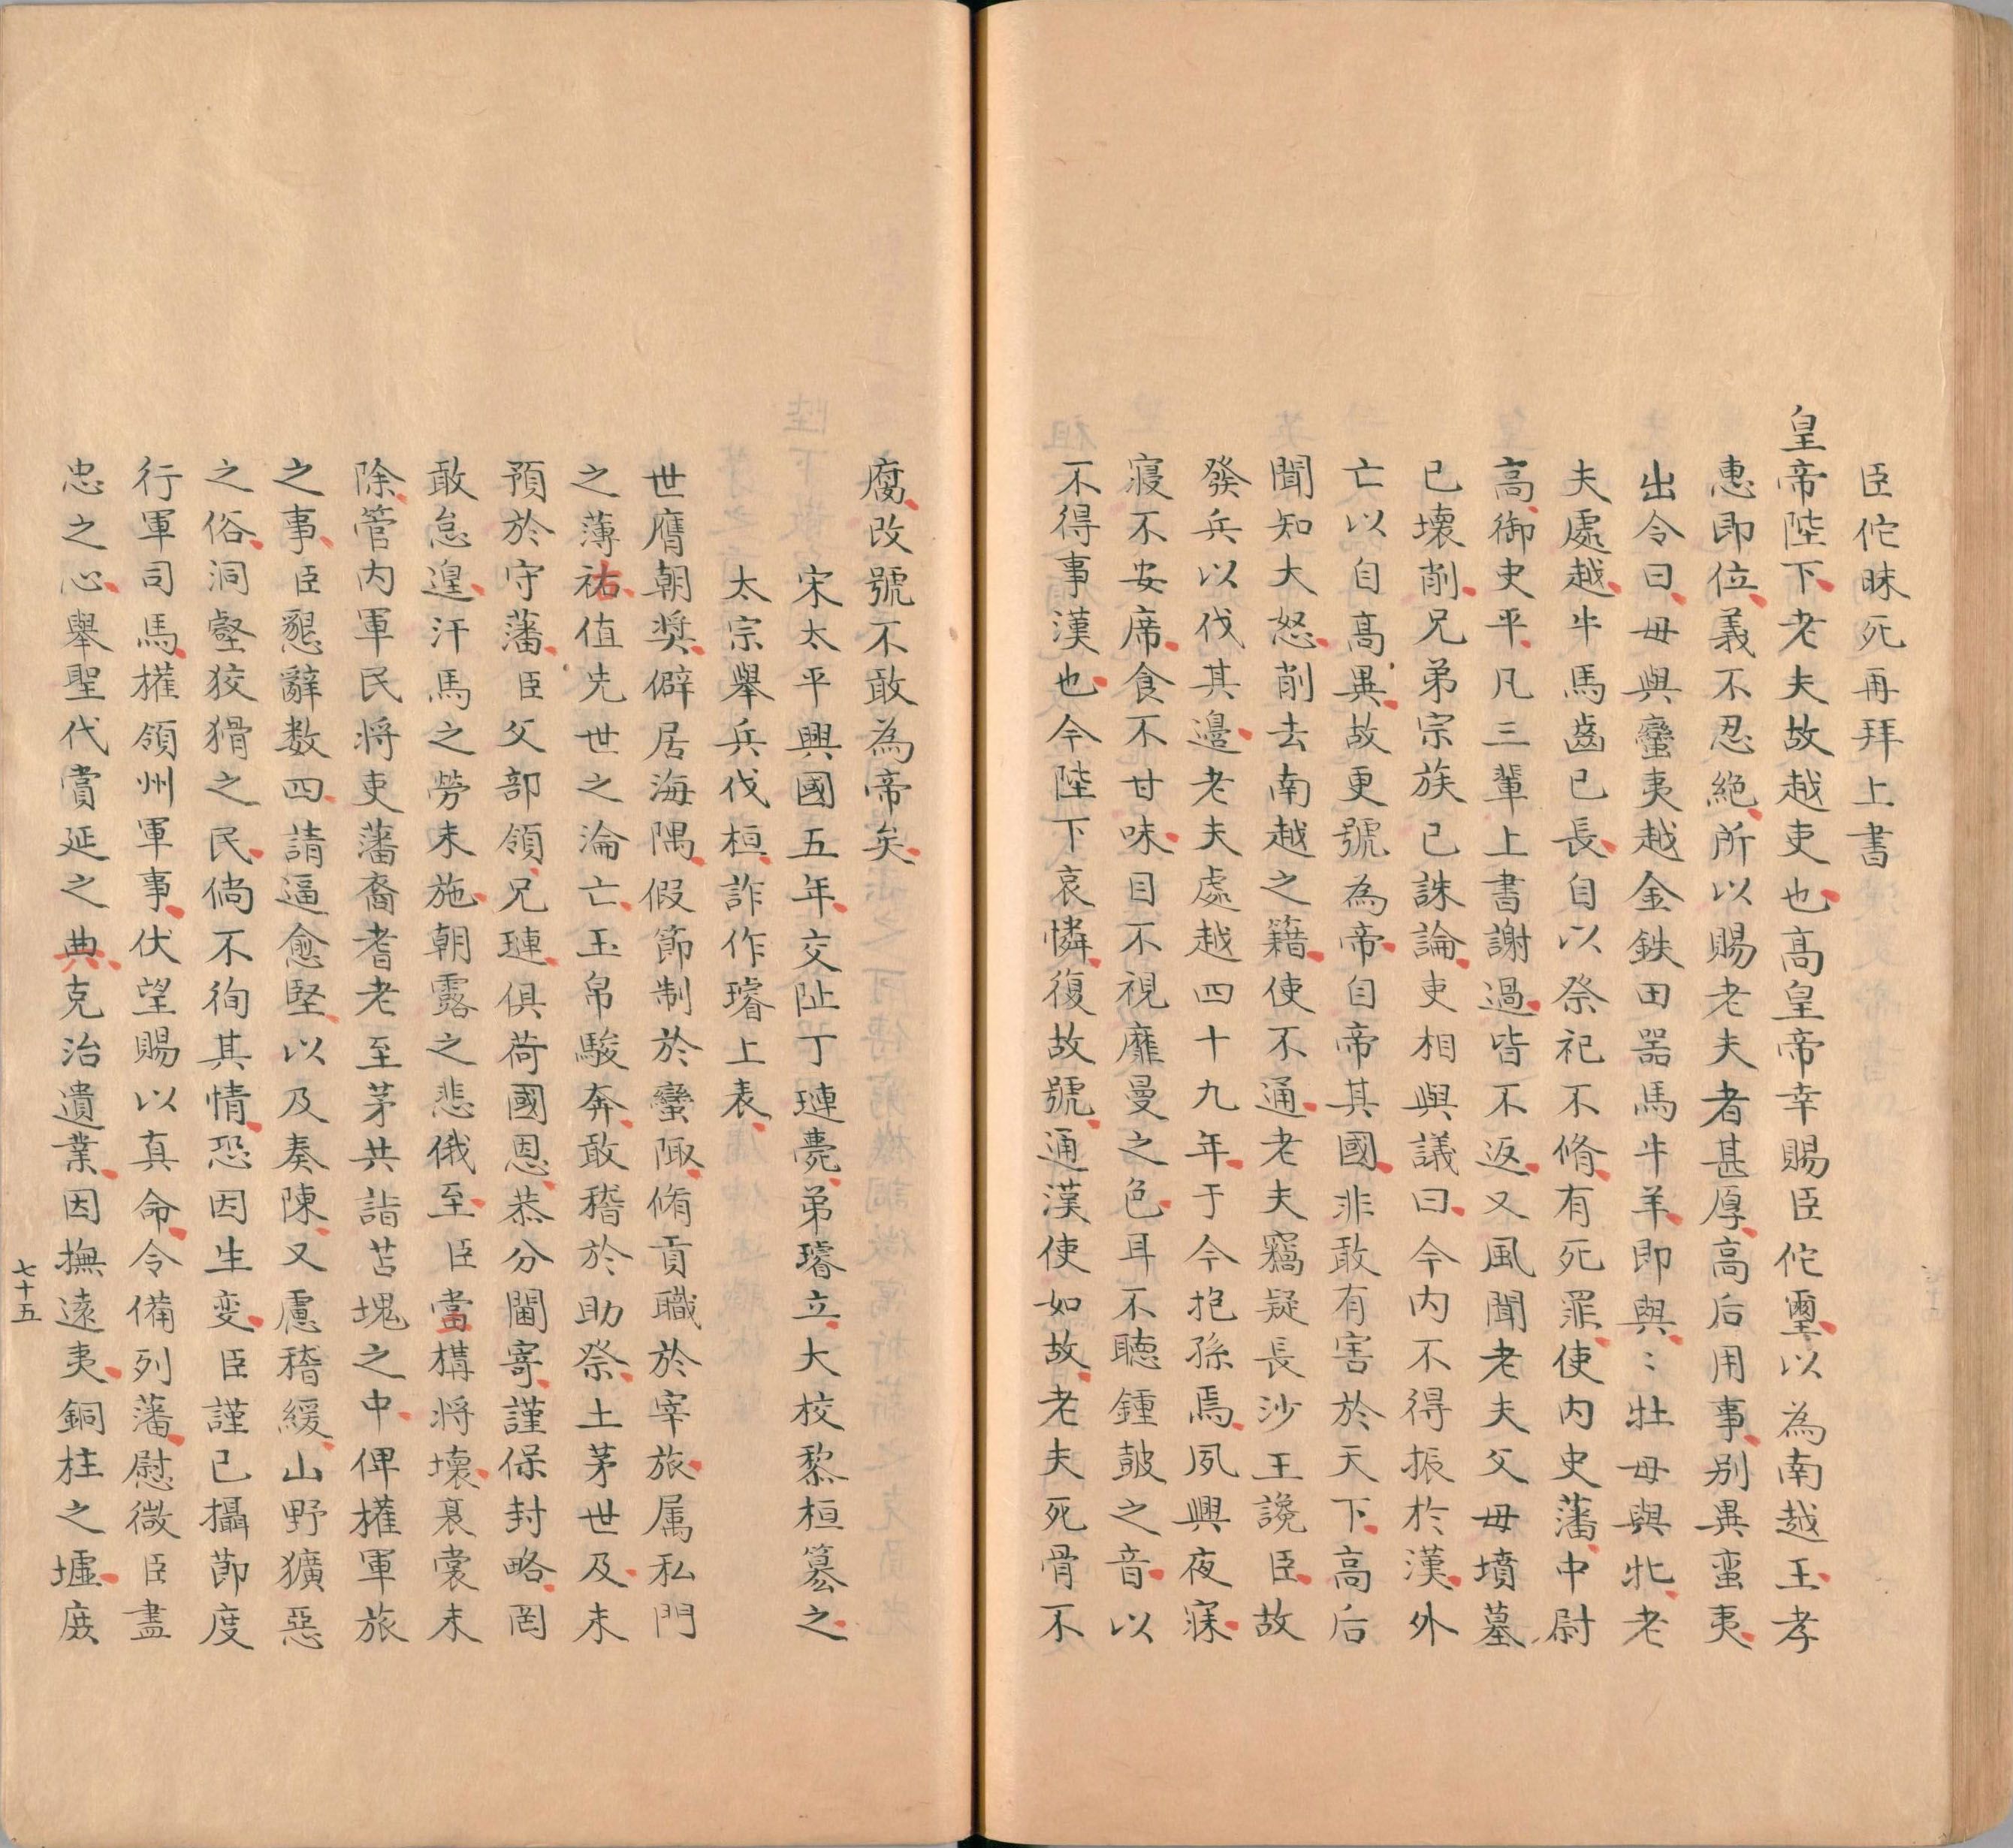 臣佗昧死再拜上書
皇帝陛下老夫故越吏也高皇帝幸賜臣佗璽以為南越王孝
惠即位義不忍絶所以賜老夫者甚厚高后用事別異蛮夷
出令曰毋與蠻夷越金鉄田器馬牛羊即與〻牡毋與牝老
夫處越牛馬齒已長自以祭祀不脩有死罪使内史藩中尉
高御史平凡三輩上書謝過皆不返又風聞老夫父母墳墓
已壞削兄弟宗族已誅論吏相與議曰今内不得振於漢外
亡以自高異故更號為帝自帝其國非敢有害於天下高后
聞知大怒削去南越之籍使不通老夫竊疑長沙王讒臣故
發兵以伐其邉老夫處越四十九年于今抱孫焉夙興夜寐
寢不安席食不甘味目不視靡曼之色耳不聽鍾皷之音以
不得事漢也今陛下哀憐復故號通漢使如故老夫死骨不
腐改號不敢為帝矣
宋太平興國五年交阯丁璉薨弟璿立大校黎桓簒之
太宗舉兵伐桓詐作璿上表
世膺朝奬僻居海隅假節制於蠻陬脩貢職於宰旅属私門
之薄祐值先世之淪亡玉帛駿奔敢稽於助祭土茅世及未
預於守藩臣父部領兄璉俱荷國恩恭分閫寄謹保封略罔
敢怠遑汗馬之勞未施朝露之悲俄至臣當構將壞裏裳未
除管内軍民将吏藩裔耆老至茅共詣苫塊之中俾權軍旅
之事臣懇辭数四請逼愈堅以及奏陳又慮稽緩山野獷惡
之俗洞壑狡猾之民倘不徇其情恐因生変臣謹已攝節度
行軍司馬權領州軍事伏望賜以真命令備列藩慰微臣盡
忠之心舉聖代賞延之典克治遺業因撫遠夷銅柱之墟庶
七十五